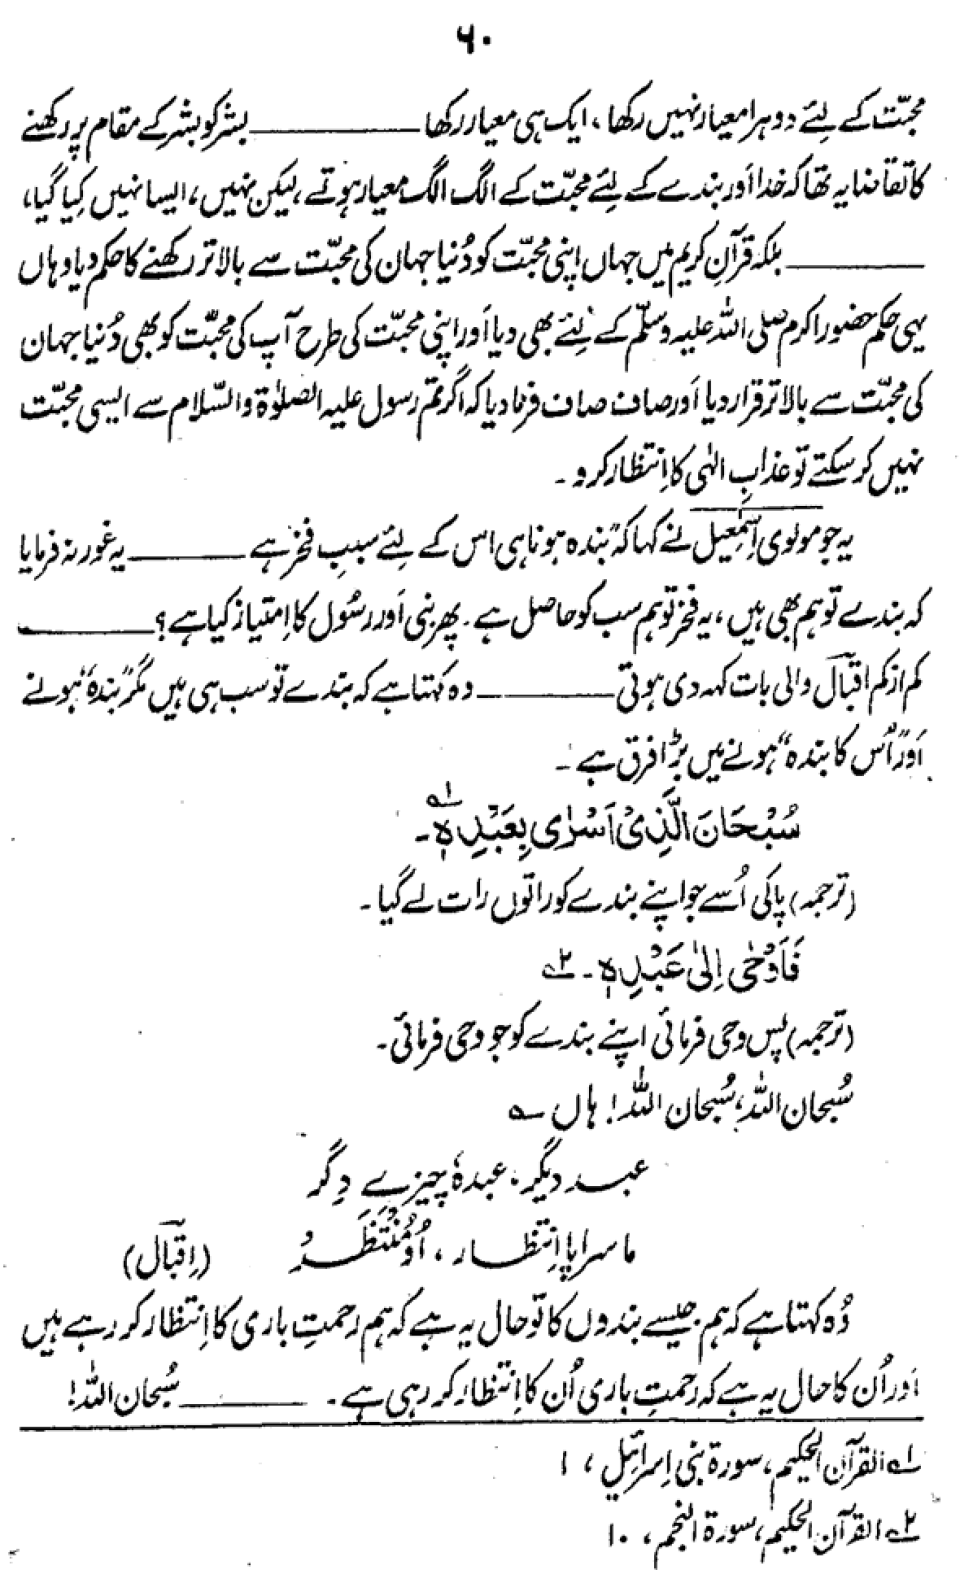 ۶۰
محبّت کے لئے دوہرا معیار نہیں رکھا، ایک ہی معیار رکھا ــــــــــــ بشر کو بشر کے مقام پر رکھنے
کا تقاضا یہ تھا کہ خدا اَور بندے کے لئے محبّت کے الگ الگ معیار ہوتے، لیکن نہیں، ایسا نہیں کِیا گیا،
ــــــــــــ بلکہ قرآنِ کریم میں جہاں اپنی محبّت کو دُنیا جہان کی محبّت سے بالاتر رکھنے کا حکم دیا وہاں
یہی حکم حضور اکرم صلی اللہ علیہ وسلّم کے لئے بھی دیا اَور اپنی محبّت کی طرح آپ کی محبّت کو بھی دُنیا جہان
کی محبّت سے بالاتر قرار دیا اَور صاف صاف فرما دیا کہ اگر تم رسول علیہ الصلوٰۃ والسّلام سے ایسی محبّت
نہیں کر سکتے تو عذابِ الٰہی کا اِنتظار کرو۔
یہ جو مولوی اِسمٰعیل نے کہا کہ ”بندہ ہونا ہی اس کے لئے سببِ فخر ہے ــــــــــــ یہ غور نہ فرمایا
کہ بندے تو ہم بھی ہیں، یہ فخر تو ہم سب کو حاصل ہے۔ پھر نبی اَور رسُول کا اِمتیاز کیا ہے؟ ــــــــــــ
کم از کم اقبالؔ والی بات کہہ دی ہوتی ــــــــــــ وہ کہتا ہے کہ بندے تو سب ہی ہیں مگر ”بندہ“ ہونے
اَور ”اُس کا بندہ“ ہونے میں بڑا فرق ہے۔
سُبْحَانَ الَّذِیْ اَسْرٰی بِعَبْدِہٖ۔ ؎۱
(ترجمہ) پاکی اُسے جو اپنے بندے کو راتوں رات لے گیا۔
فَاَوْحٰی اِلیٰ عَبْدِہٖ۔ ؎۲
(ترجمہ) پس وحی فرمائی اپنے بندے کو جو وحی فرمائی۔
سُبحان اللہ، سُبحان اللہ! ہاں ؎
عبد دیگر، عبدہٗ چیزے دِگر
ما سراپا اِنتظار، اُو مُنْتَظَر (اِقبالؔ)
وُہ کہتا ہے کہ ہم جیسے بندوں کا تو حال یہ ہے کہ ہم رحمتِ باری کا اِنتظار کر رہے ہیں
اَور اُن کا حال یہ ہے کہ رحمتِ باری اُن کا اِنتظار کر رہی ہے۔ ــــــــــــ سُبحان اللہ!
؎۱ القرآن الحکیم، سورۃ بنی اِسرائیل، ۱
؎۲ القرآن الحکیم، سورۃ النجم، ۱۰